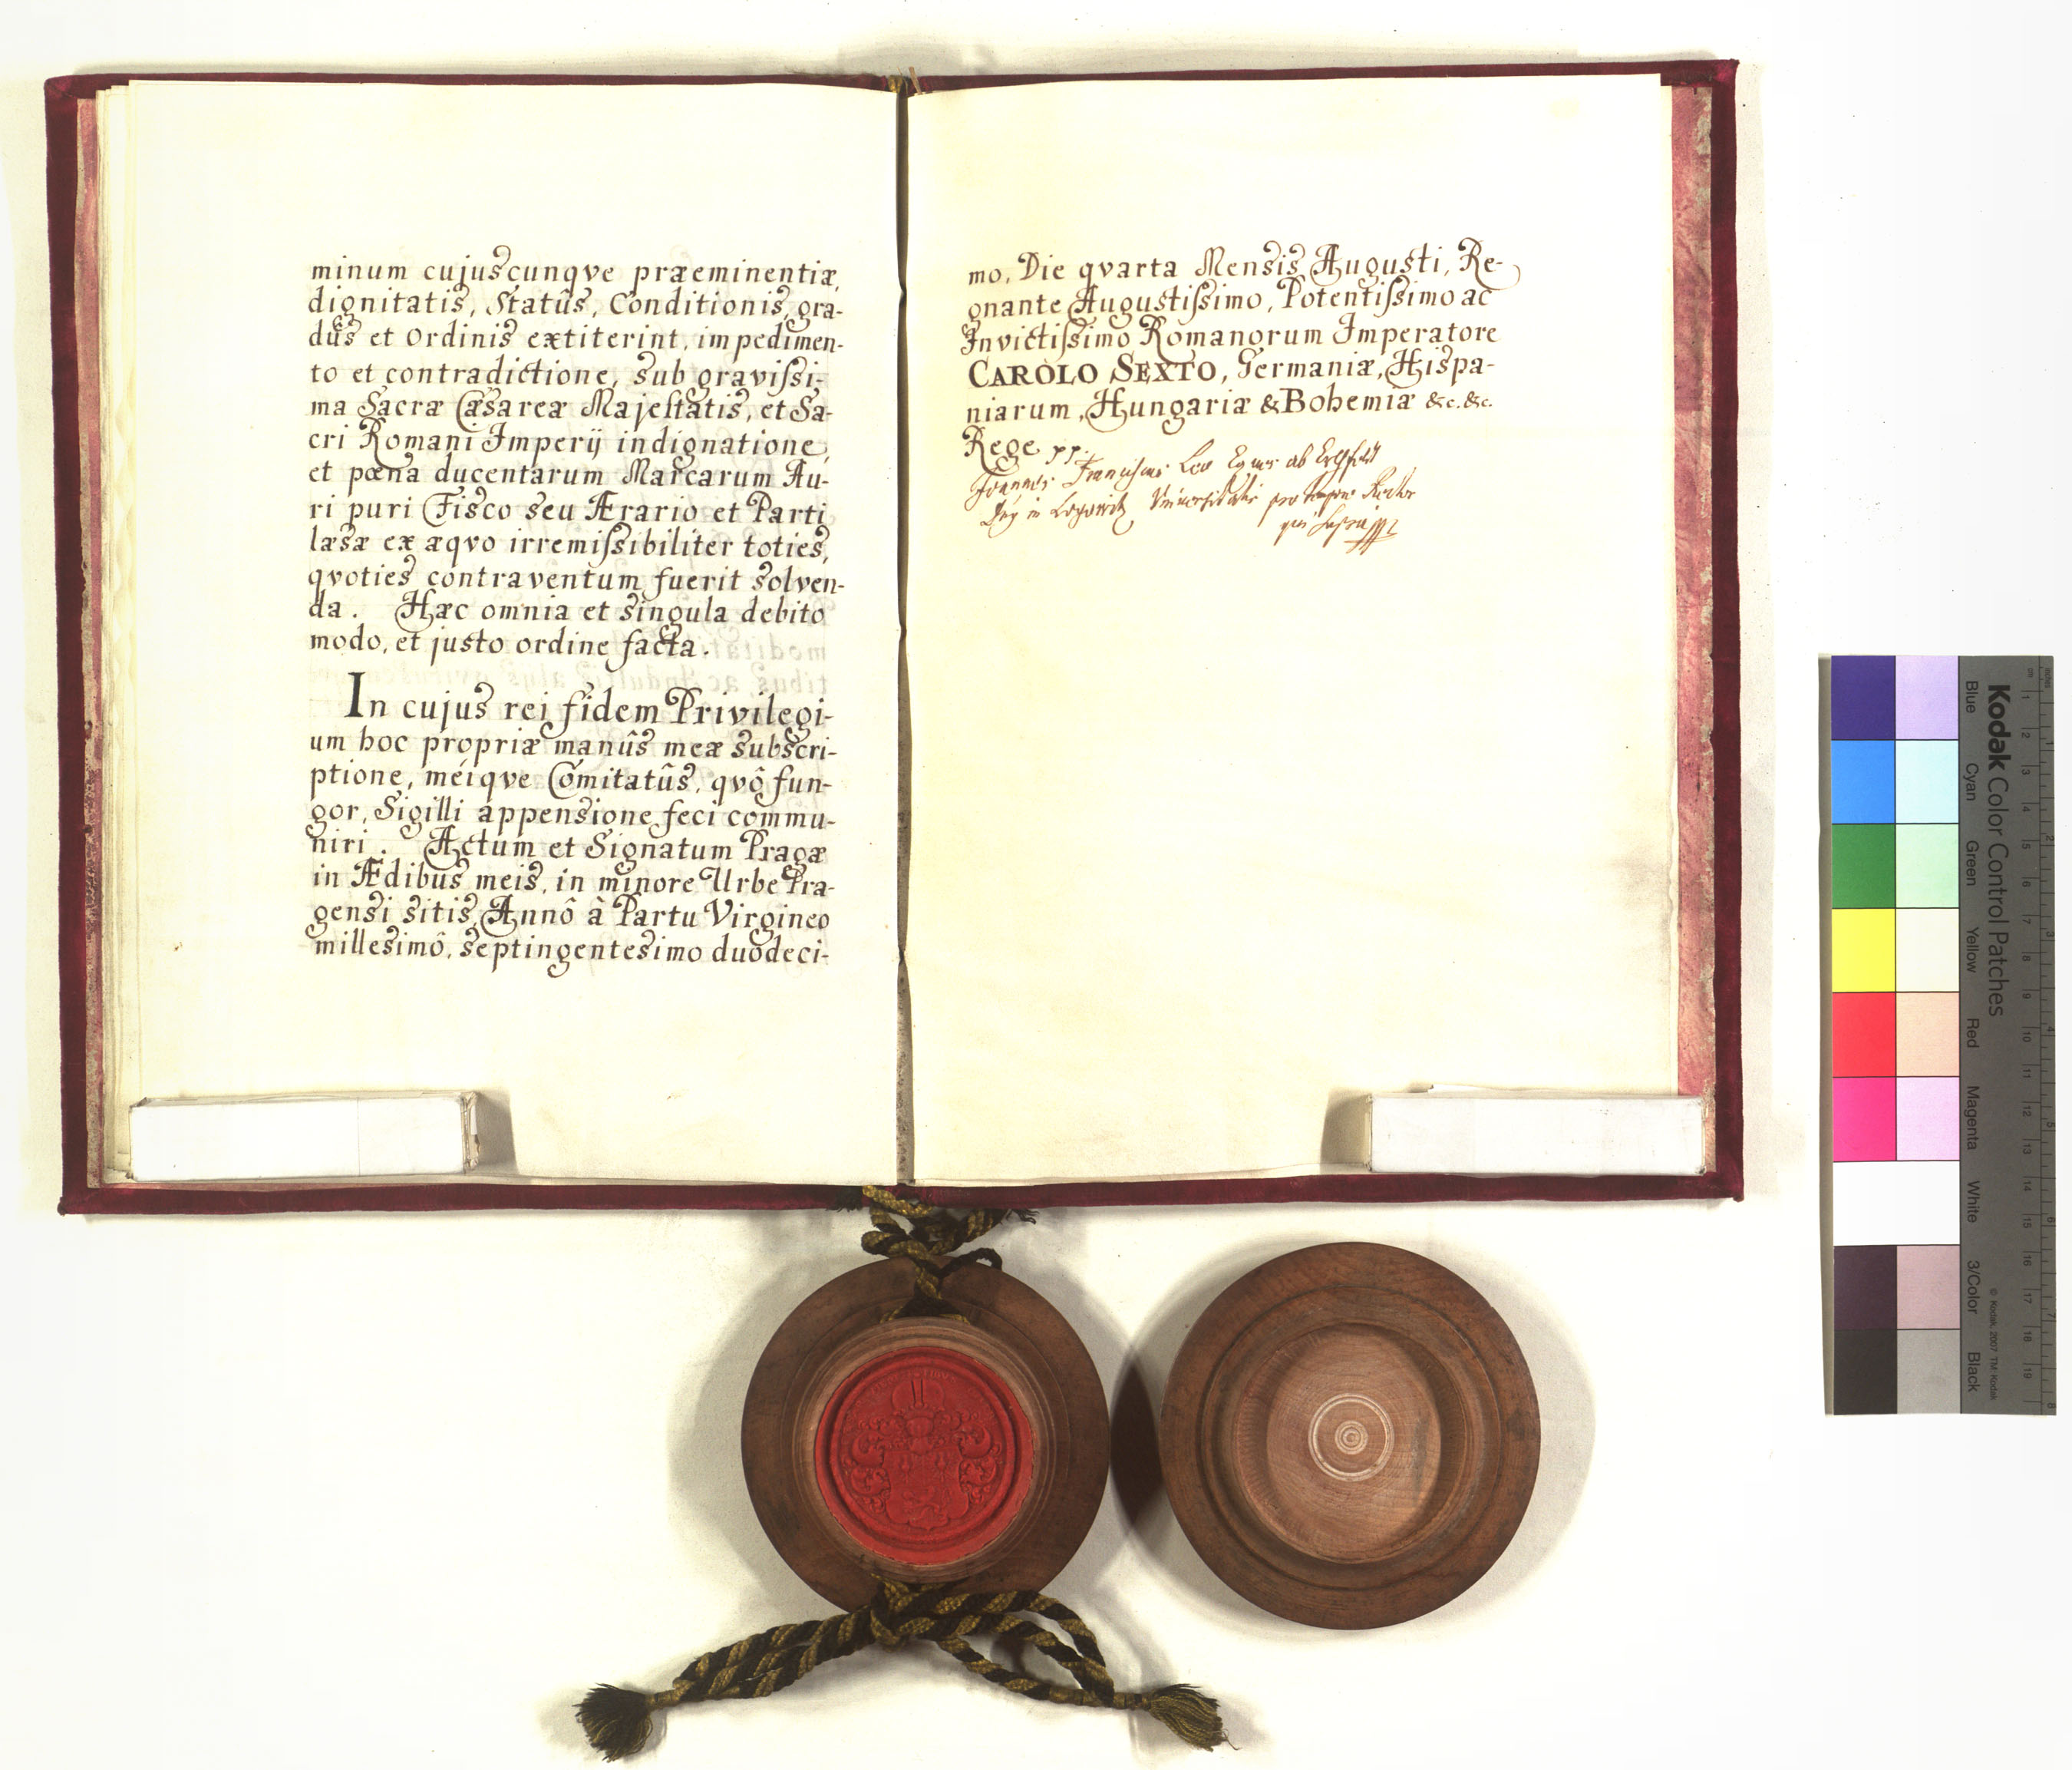 minum cujuscunqve præeminentiæ,
dignitatis, Statûs, Conditionis, gra-
dûs et Ordinis extiterint, impedimen-
to et contradictione, sub gravissi-
ma Sacræ Cæsareæ Majestatis, et Sa-
cri Romani Imperij indignatione,
et pœna ducentarum Marcarum Au-
ri puri Fisco seu Ærario et Parti
læsæ ex æqvo irremissibiliter toties,
qvoties contraventum fuerit solven-
da. Hæc omnia et singula debito
modo, et justo ordine facta.
In cujus rei fidem Privilegi-
um hoc propriæ manûs meæ subscri-
ptione, méiqve Comitatûs, qvô fun-
gor, Sigilli appensione feci commu-
niri. Actum et Signatum Pragæ
in Ædibus meis, in minore Urbe Pra-
gensi sitis, Annô â Partu Virgineo
millesimô, septingentesimo duodeci-
mo, Die qvarta Mensis Augusti, Re-
gnante Augustissimo, Potentissimo ac
Invictissimo Romanorum Imperatore
CAROLO SEXTO, Germaniæ, Hispa-
niarum, Hungariæ & Bohemiæ &c. &c.
Rege pp.
Joannes Franciscus Leo Eques ab
in Universitatis pro tempore Rector
Kodak Color Control Patches
Blue Cyan Green Yellow Red Magenta White 3/Color Black
© Kodak, 2007 TM: Kodak
cm 1 2 3 4 5 6 7 8 9 10 11 12 13 14 15 16 17 18 19
inches 1 2 3 4 5 6 7 8